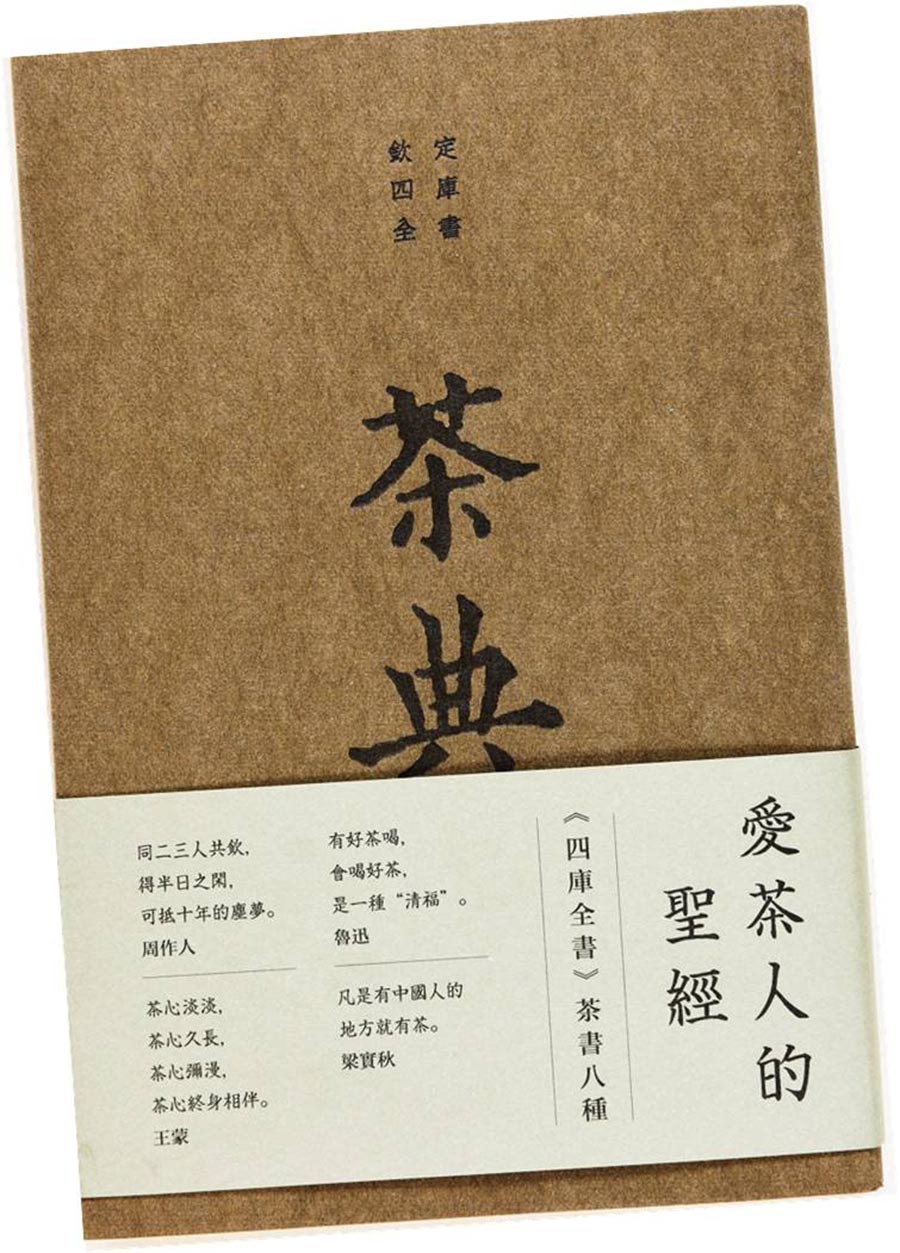 欽定
四庫
全書
茶典
愛茶人的
聖經
《四庫全書》茶書八種
有好茶喝，
會喝好茶，
是一種“清福”。
魯迅
凡是有中國人的
地方就有茶。
梁實秋
同二三人共飲，
得半日之閑，
可抵十年的塵夢。
周作人
茶心淡淡，
茶心久長，
茶心彌漫，
茶心終身相伴。
王蒙